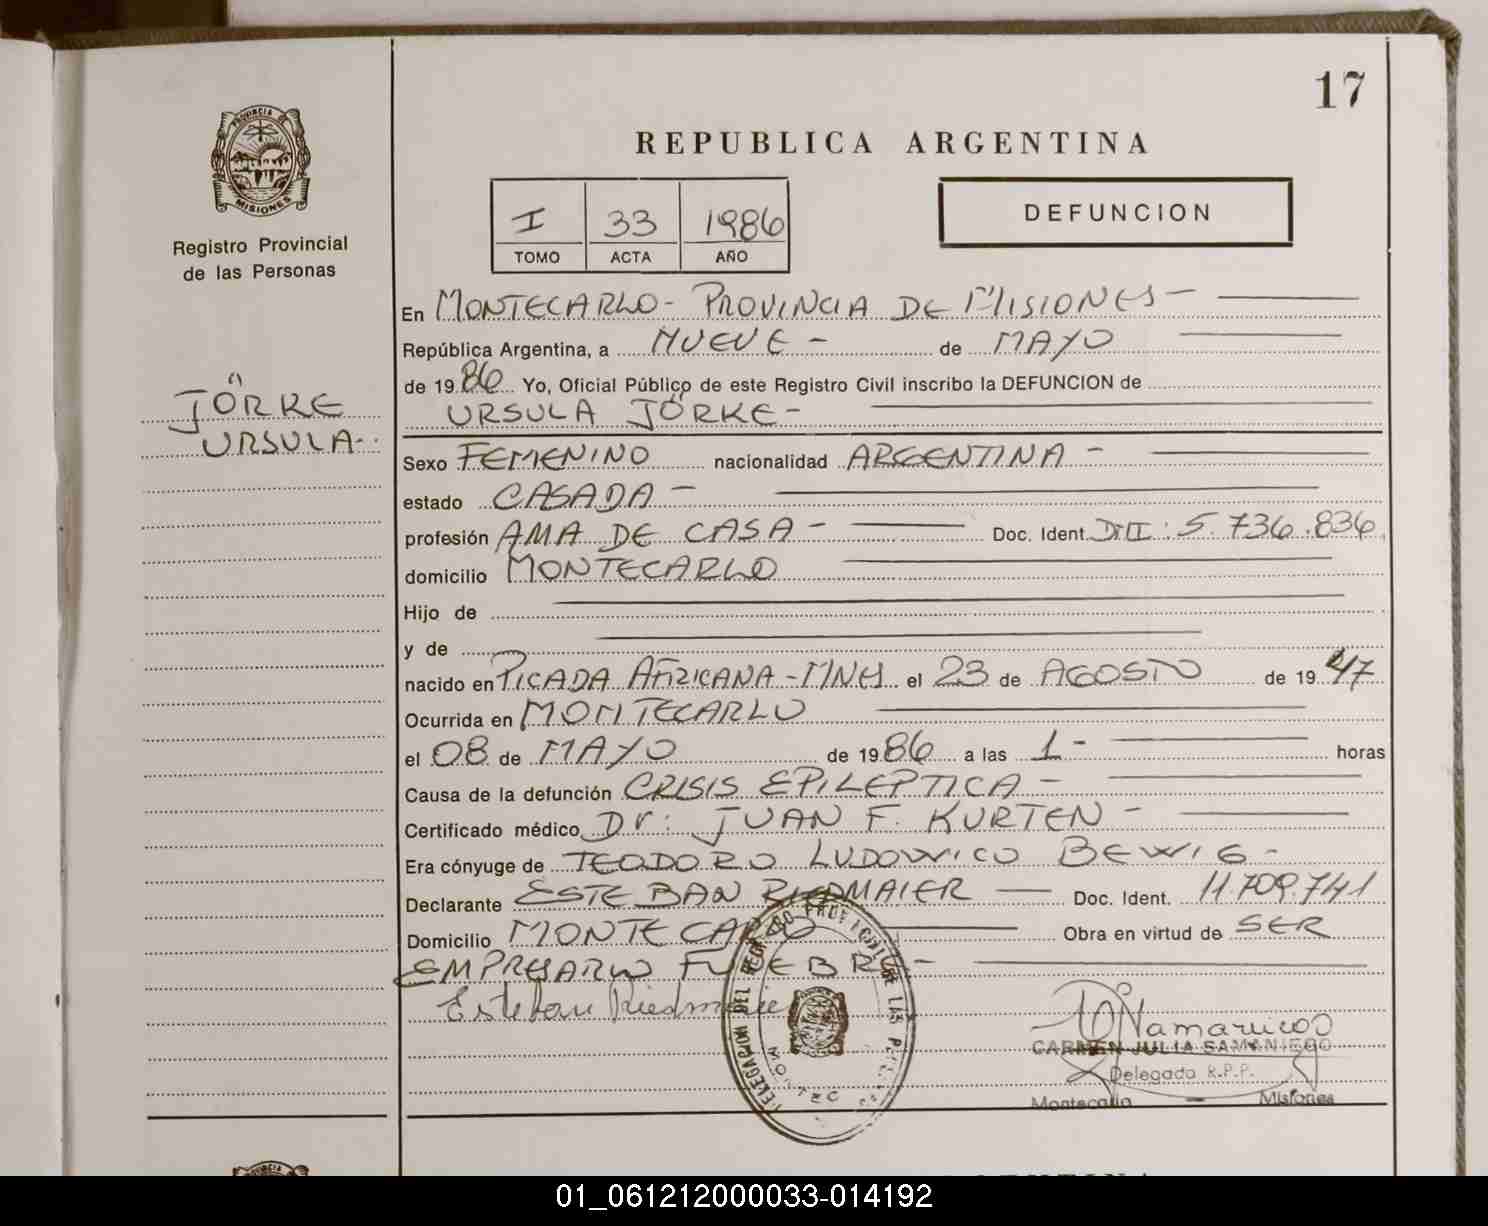 17
REPUBLICA ARGENTINA
PROVINCIA DE
MISIONES
Registro Provincial
de las Personas
I 33 1986
TOMO ACTA AÑO
DEFUNCION
En MONTECARLO - PROVINCIA DE MISIONES -
República Argentina, a NUEVE - de MAYO
de 1986 Yo, Oficial Público de este Registro Civil inscribo la DEFUNCION de
JÖRKE
URSULA JÖRKE -
URSULA -
Sexo FEMENINO nacionalidad ARGENTINA -
estado CASADA -
profesión AMA DE CASA - Doc. Ident. DNI: 5.736.836
domicilio MONTECARLO
Hijo de
y de
nacido en PICADA AFRICANA - MNES el 23 de AGOSTO de 1947
Ocurrida en MONTECARLO
el 08 de MAYO de 1986 a las 1 - horas
Causa de la defunción CRISIS EPILEPTICA -
Certificado médico Dr: JUAN F. KURTEN -
Era cónyuge de TEODORO LUDOVICO BEWIG -
Declarante ESTEBAN RIEDMAIER Doc. Ident. 11.709.741
Domicilio MONTECARLO Obra en virtud de SER
EMPRESARIO FUNEBRE -
Esteban Riedmaier
CARMEN JULIA SAMANIEGO
Delegada R.P.P.
Montecarlo - Misiones
01_061212000033-014192